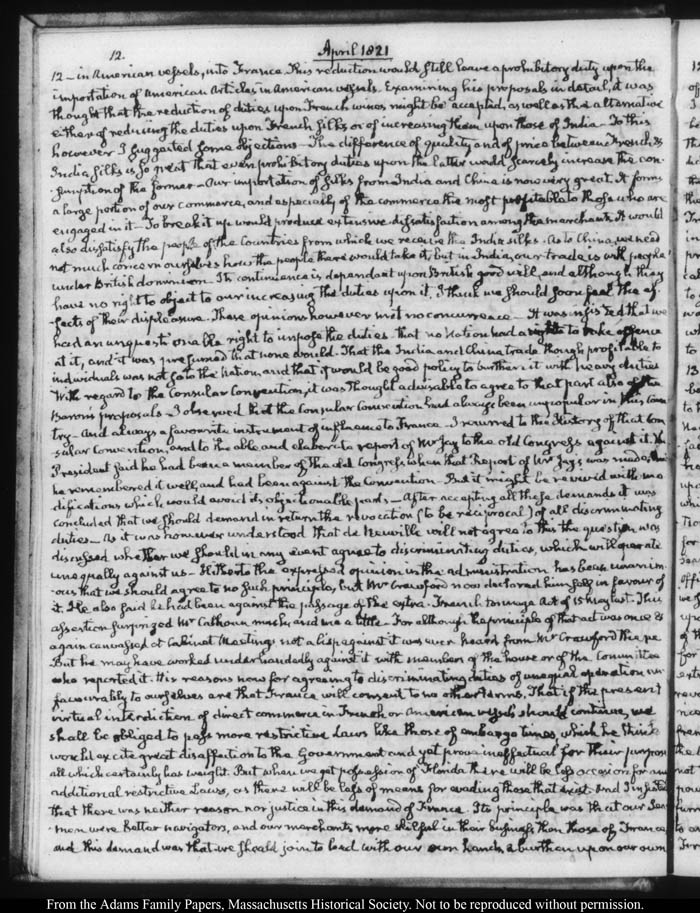 12.
April 1821
12 – in American vessels, into France. This reduction would still leave a prohibitory duty upon the
importation of American Articles in American vessels. Examining his proposals in detail, it was
thought that the reduction of duties upon French wines might be accepted, as well as the alternative
either of reducing the duties upon French silks or of increasing them upon those of India. To this
however I suggested some objections – The difference of quality and of price between French &
India silks is so great that even prohibitory duties upon the latter would scarcely increase the con-
-sumption of the former – Our importation of silks from India and China is now very great. It forms
a large portion of our commerce, and especially of the commerce the most profitable to those who are
engaged in it – To break it up would produce extensive dissatisfaction among the merchants. It would
also dissatisfy the people of the Countries from which we receive the India silks. As to China, we need
not much concern ourselves how the people there would take it, but in India, our trade is with people
under British dominion. Its continuance is dependant upon British good will, and although they
have no right to object to our increasing the duties upon it, I think we should soon feel the ef-
-fects of their displeasure. These opinions however met no concurrence – It was insisted that we
had an unquestionable right to impose the duties. that no Nation had a right to take offence
at it, and it was presumed that none would. That the India and China trade though profitable to
individuals was not so to the Nation, and that it would be good policy to burthen it with heavy duties
With regard to the Consular Convention, it was thought advisable to agree to that part also of the
Baron's proposals – I observed that the Consular Convention had always been unpopular in this Coun
try – And always a favourite instrument of influence to France – I recurred to the History of that Con
sular Convention, and to the able and elaborate report of Mr Jay to the old Congress against it. The
President said he had been a member of the old Congress when that Report of Mr Jay's was made, that
he remembered it well, and had been against the Convention. But it might be revived with mo
difications which would avoid its objectionable parts – After accepting all these demands it was
concluded that we should demand in return the revocation (to be reciprocal) of all discriminating
duties – As it was however understood that de Neuville will not agree to this the question was
discussed whether we should in any event agree to discriminating duties, which will operate
unequally against us – Hitherto the expressed opinion in the administration has been unanim-
-ous that we should agree to no such principle, but Mr Crawford now declared himself in favour of
it. He also said he had been against the passage of the extra-French tonnage Act of 15 May last. This
assertion surprized Mr Calhoun much, and me a little – For although the principle of that act was once &
again canvassed at Cabinet Meetings not a lisp against it was ever heard from Mr Crawford there
But he may have worked underhandedly against it with members of the house or of the Committee
who reported it. His reasons now for agreeing to discriminating duties of unequal operation un-
favourably to ourselves are that France will consent to no other terms. That if the present
virtual interdiction of direct commerce in French or American vessels should continue, we
shall be obliged to pass more restrictive laws like those of embargo times, which he thinks
would excite great disaffection to the Government and yet prove ineffectual for their purpose
all which certainly has weight. But when we get possession of Florida there will be less occasion for any
additional restrictive Laws, as there will be less of means for evading those that exist. And I insisted
that there was neither reason nor justice in this demand of France. Its principle was that our Sea-
-men were better navigators, and our merchants more skilful in their business than those of France,
and this demand was that we should join to load with our own hands, a burthen upon our own
From the Adams Family Papers, Massachusetts Historical Society. Not to be reproduced without permission.